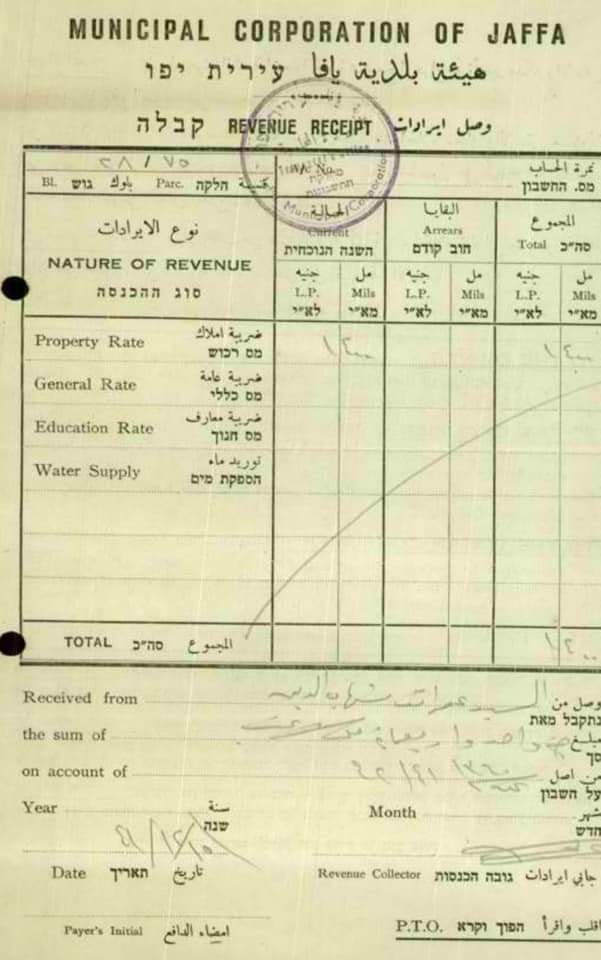 MUNICIPAL CORPORATION OF JAFFA
هيئة بلدية يافا עירית יפו
קבלה REVENUE RECEIPT وصل ايرادات
٢٨ / ٧٥
Bl. גוש بلوك Parc. חלקה قسيمة
نمرة الحساب
מס. החשבון
نوع الايرادات
NATURE OF REVENUE
סוג ההכנסה
الحالية
Current
השנה הנוכחית
البقايا
Arrears
חוב קודם
المجموع
Total סה"כ
جنيه مل جنيه مل جنيه مل
L.P. Mils L.P. Mils L.P. Mils
לא"י מא"י לא"י מא"י לא"י מא"י
Property Rate ضريبة املاك ١ ٤٠٠ ١ ٤٠٠
מס רכוש
General Rate ضريبة عامة
מס כללי
Education Rate ضريبة معارف
מס חנוך
Water Supply توريد ماء
הספקת מים
TOTAL סה"כ المجموع ١ ٤٠٠
Received from السيد شهاب الدين وصل من
נתקבל מאת
the sum of واحد واربعماية مل مبلغ
סך
on account of ٤٢/٤١ من اصل
על חשבון
Year سنة Month شهر
שנה חדש
Date תאריך تاريخ Revenue Collector גובה הכנסות جابي ايرادات
Payer's Initial امضاء الدافع P.T.O. הפוך וקרא اقلب واقرأ
Municipal Corporation